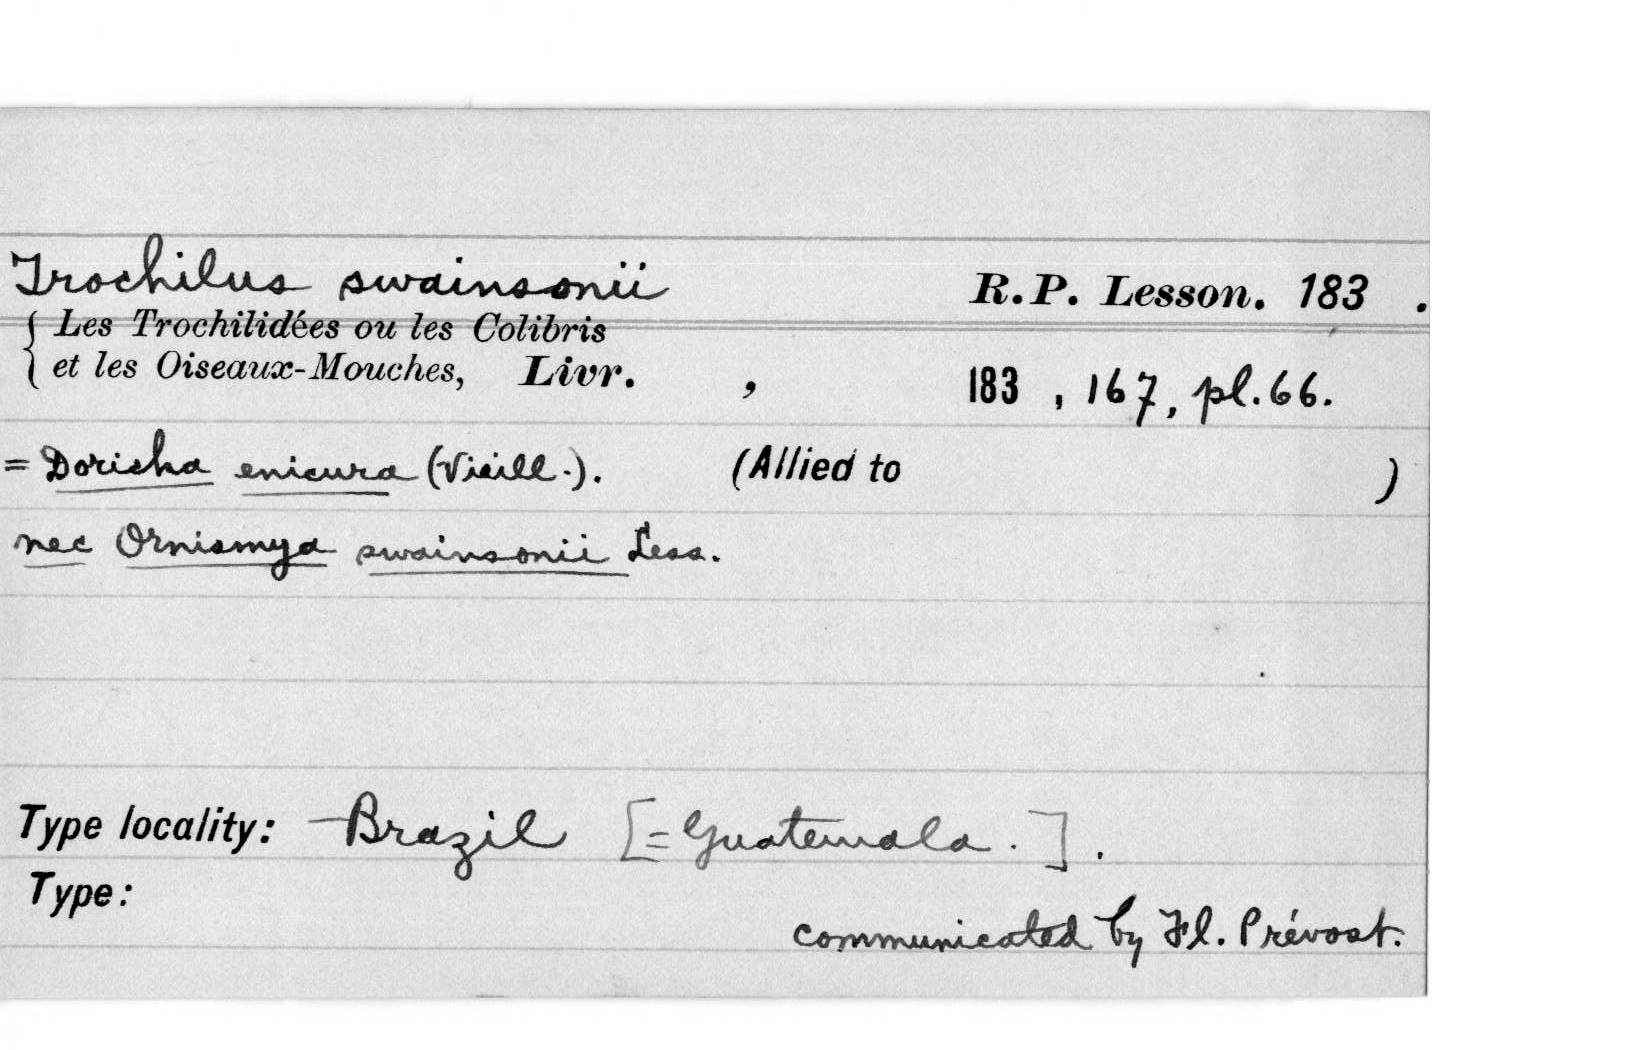 Trochilus swainsonii R.P. Lesson. 183 .
{ Les Trochilidées ou les Colibris
et les Oiseaux-Mouches, Livr. , 183 , 167, pl. 66.
= Doricha enicura (Vieill.). (Allied to )
nec Ornismya swainsonii Less.
Type locality: Brazil [= Guatemala . ] .
Type:
communicated by Fl. Prévost.